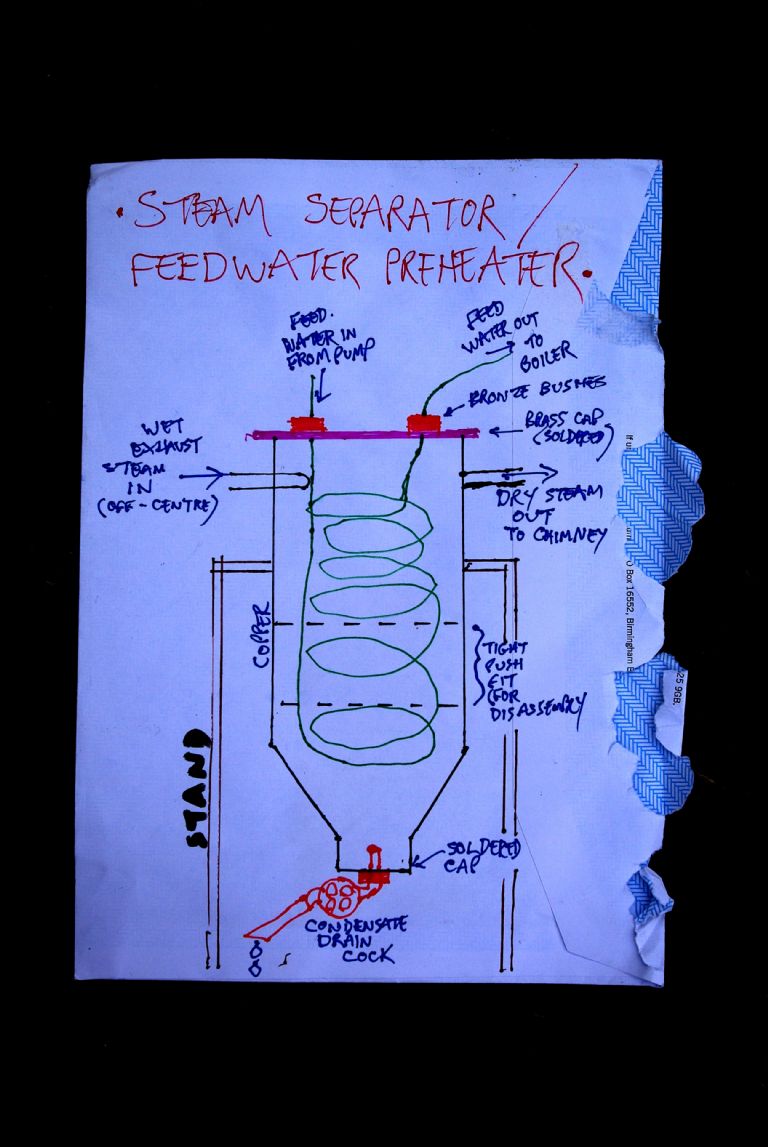 . STEAM SEPARATOR /
FEEDWATER PREHEATER.
FEED.
WATER IN
FROM PUMP
FEED
WATER OUT
TO
BOILER
BRONZE BUSHES
BRASS CAP
(SOLDERED)
WET
EXHAUST
STEAM
IN
(OFF-CENTRE)
DRY STEAM
OUT
TO CHIMNEY
COPPER
TIGHT
PUSH
FIT
(FOR
DISASSEMBLY
STAND
SOLDERED
CAP
CONDENSATE
DRAIN
COCK
If u
O Box 16552, Birmingham B
25 9GB.